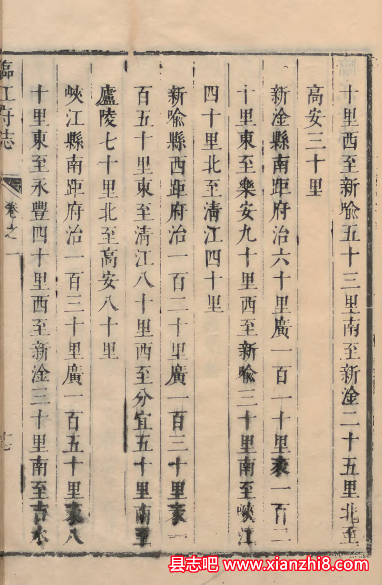 十里西至新喻五十三里南至新淦二十五里北至
高安三十里
新淦縣南距府治六十里廣一百一十里袤一百二
十里東至樂安九十里西至新喻三十里南至峽江
四十里北至清江四十里
新喻縣西距府治一百二十里廣一百三十里袤一
百五十里東至清江八十里西至分宜五十里南至
廬陵七十里北至高安八十里
峽江縣南距府治一百三十里廣一百五十里袤八
十里東至永豐四十里西至新淦三十里南至吉水
臨江府志
卷之一
七
县志吧!
www.xianzhi8.com